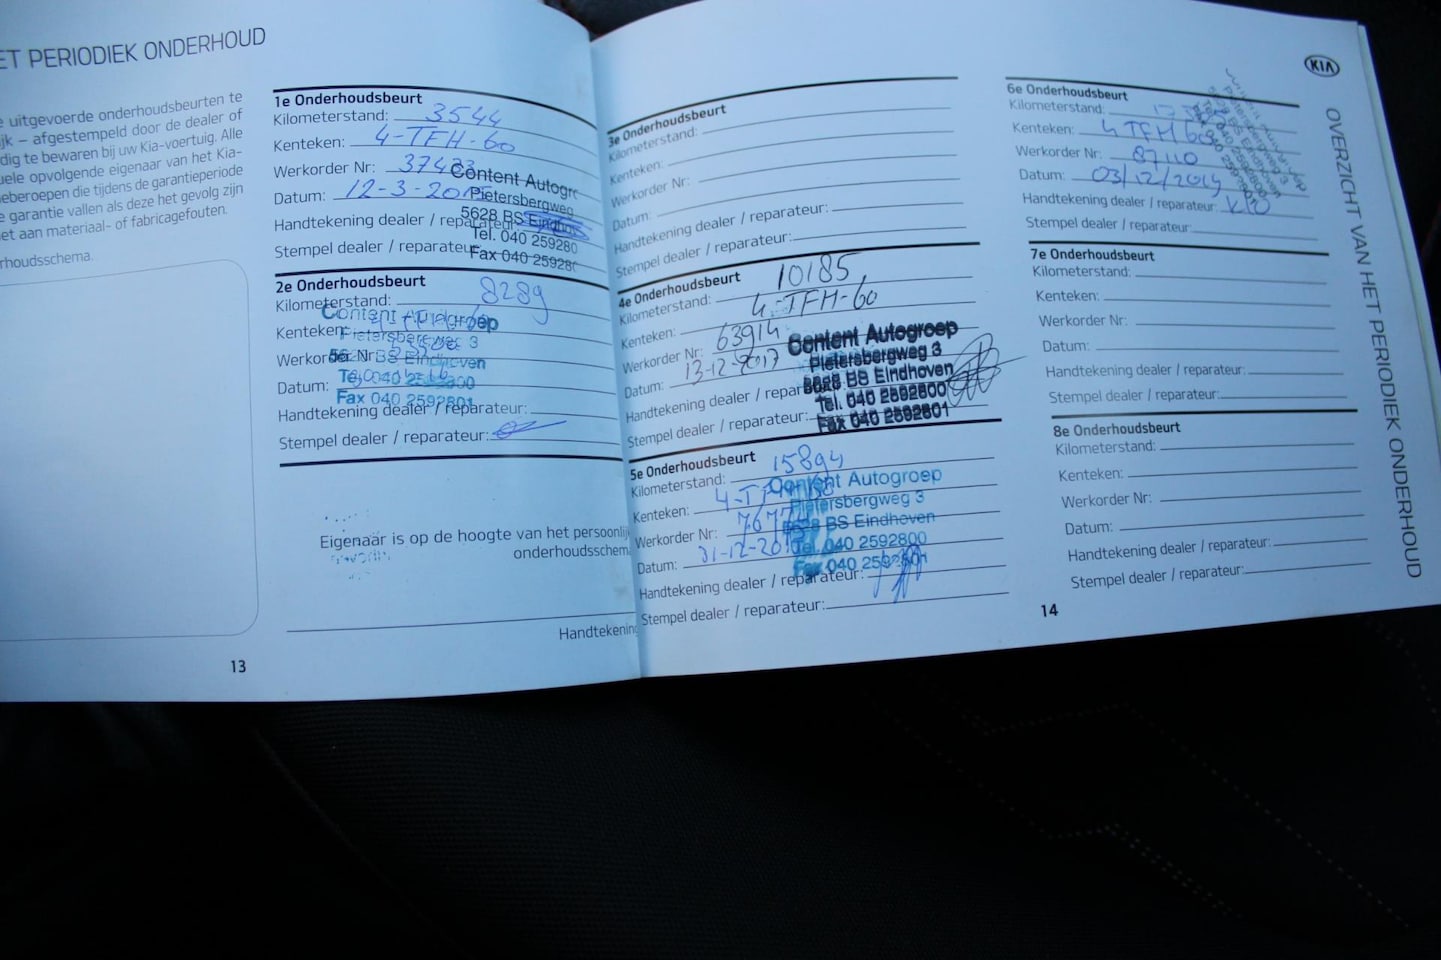 ET PERIODIEK ONDERHOUD
e uitgevoerde onderhoudsbeurten te
jk – afgestempeld door de dealer of
dig te bewaren bij uw Kia-voertuig. Alle
uele opvolgende eigenaar van het Kia-
eberoepen die tijdens de garantieperiode
e garantie vallen als deze het gevolg zijn
et aan materiaal- of fabricagefouten.
rhoudsschema.
13
1e Onderhoudsbeurt
Kilometerstand: 3544
Kenteken: 4-TFH-60
Werkorder Nr: 37483
Datum: 12-3-2015
Handtekening dealer / reparateur:
Stempel dealer / reparateur:
Content Autogr
Pietersbergweg
5628 BS Eindhov
Tel. 040 259280
Fax 040 25928
2e Onderhoudsbeurt
Kilometerstand: 8289
Kenteken:
Werkorder Nr:
Datum:
Handtekening dealer / reparateur:
Stempel dealer / reparateur:
Content Autogroep
Pietersbergweg 3
BS Eindhoven
Tel. 040 2592800
Fax 040 2592801
Eigenaar is op de hoogte van het persoonlij
onderhoudsschem
Handtekening
3e Onderhoudsbeurt
Kilometerstand:
Kenteken:
Werkorder Nr:
Datum:
Handtekening dealer / reparateur:
Stempel dealer / reparateur:
4e Onderhoudsbeurt
Kilometerstand: 10185
Kenteken: 4-TFH-60
Werkorder Nr: 63914
Datum: 13-12-2017
Handtekening dealer / reparateur:
Stempel dealer / reparateur:
Content Autogroep
Pietersbergweg 3
5628 BS Eindhoven
Tel. 040 2592800
Fax 040 2592801
5e Onderhoudsbeurt
Kilometerstand: 15894
Kenteken:
Werkorder Nr:
Datum:
Handtekening dealer / reparateur:
Stempel dealer / reparateur:
Content Autogroep
Pietersbergweg 3
5628 BS Eindhoven
Tel. 040 2592800
Fax 040 2592801
6e Onderhoudsbeurt
Kilometerstand:
Kenteken: 4TFH60
Werkorder Nr: 87110
Datum: 03/12/2019
Handtekening dealer / reparateur:
Stempel dealer / reparateur:
7e Onderhoudsbeurt
Kilometerstand:
Kenteken:
Werkorder Nr:
Datum:
Handtekening dealer / reparateur:
Stempel dealer / reparateur:
8e Onderhoudsbeurt
Kilometerstand:
Kenteken:
Werkorder Nr:
Datum:
Handtekening dealer / reparateur:
Stempel dealer / reparateur:
14
KIA
OVERZICHT VAN HET PERIODIEK ONDERHOUD